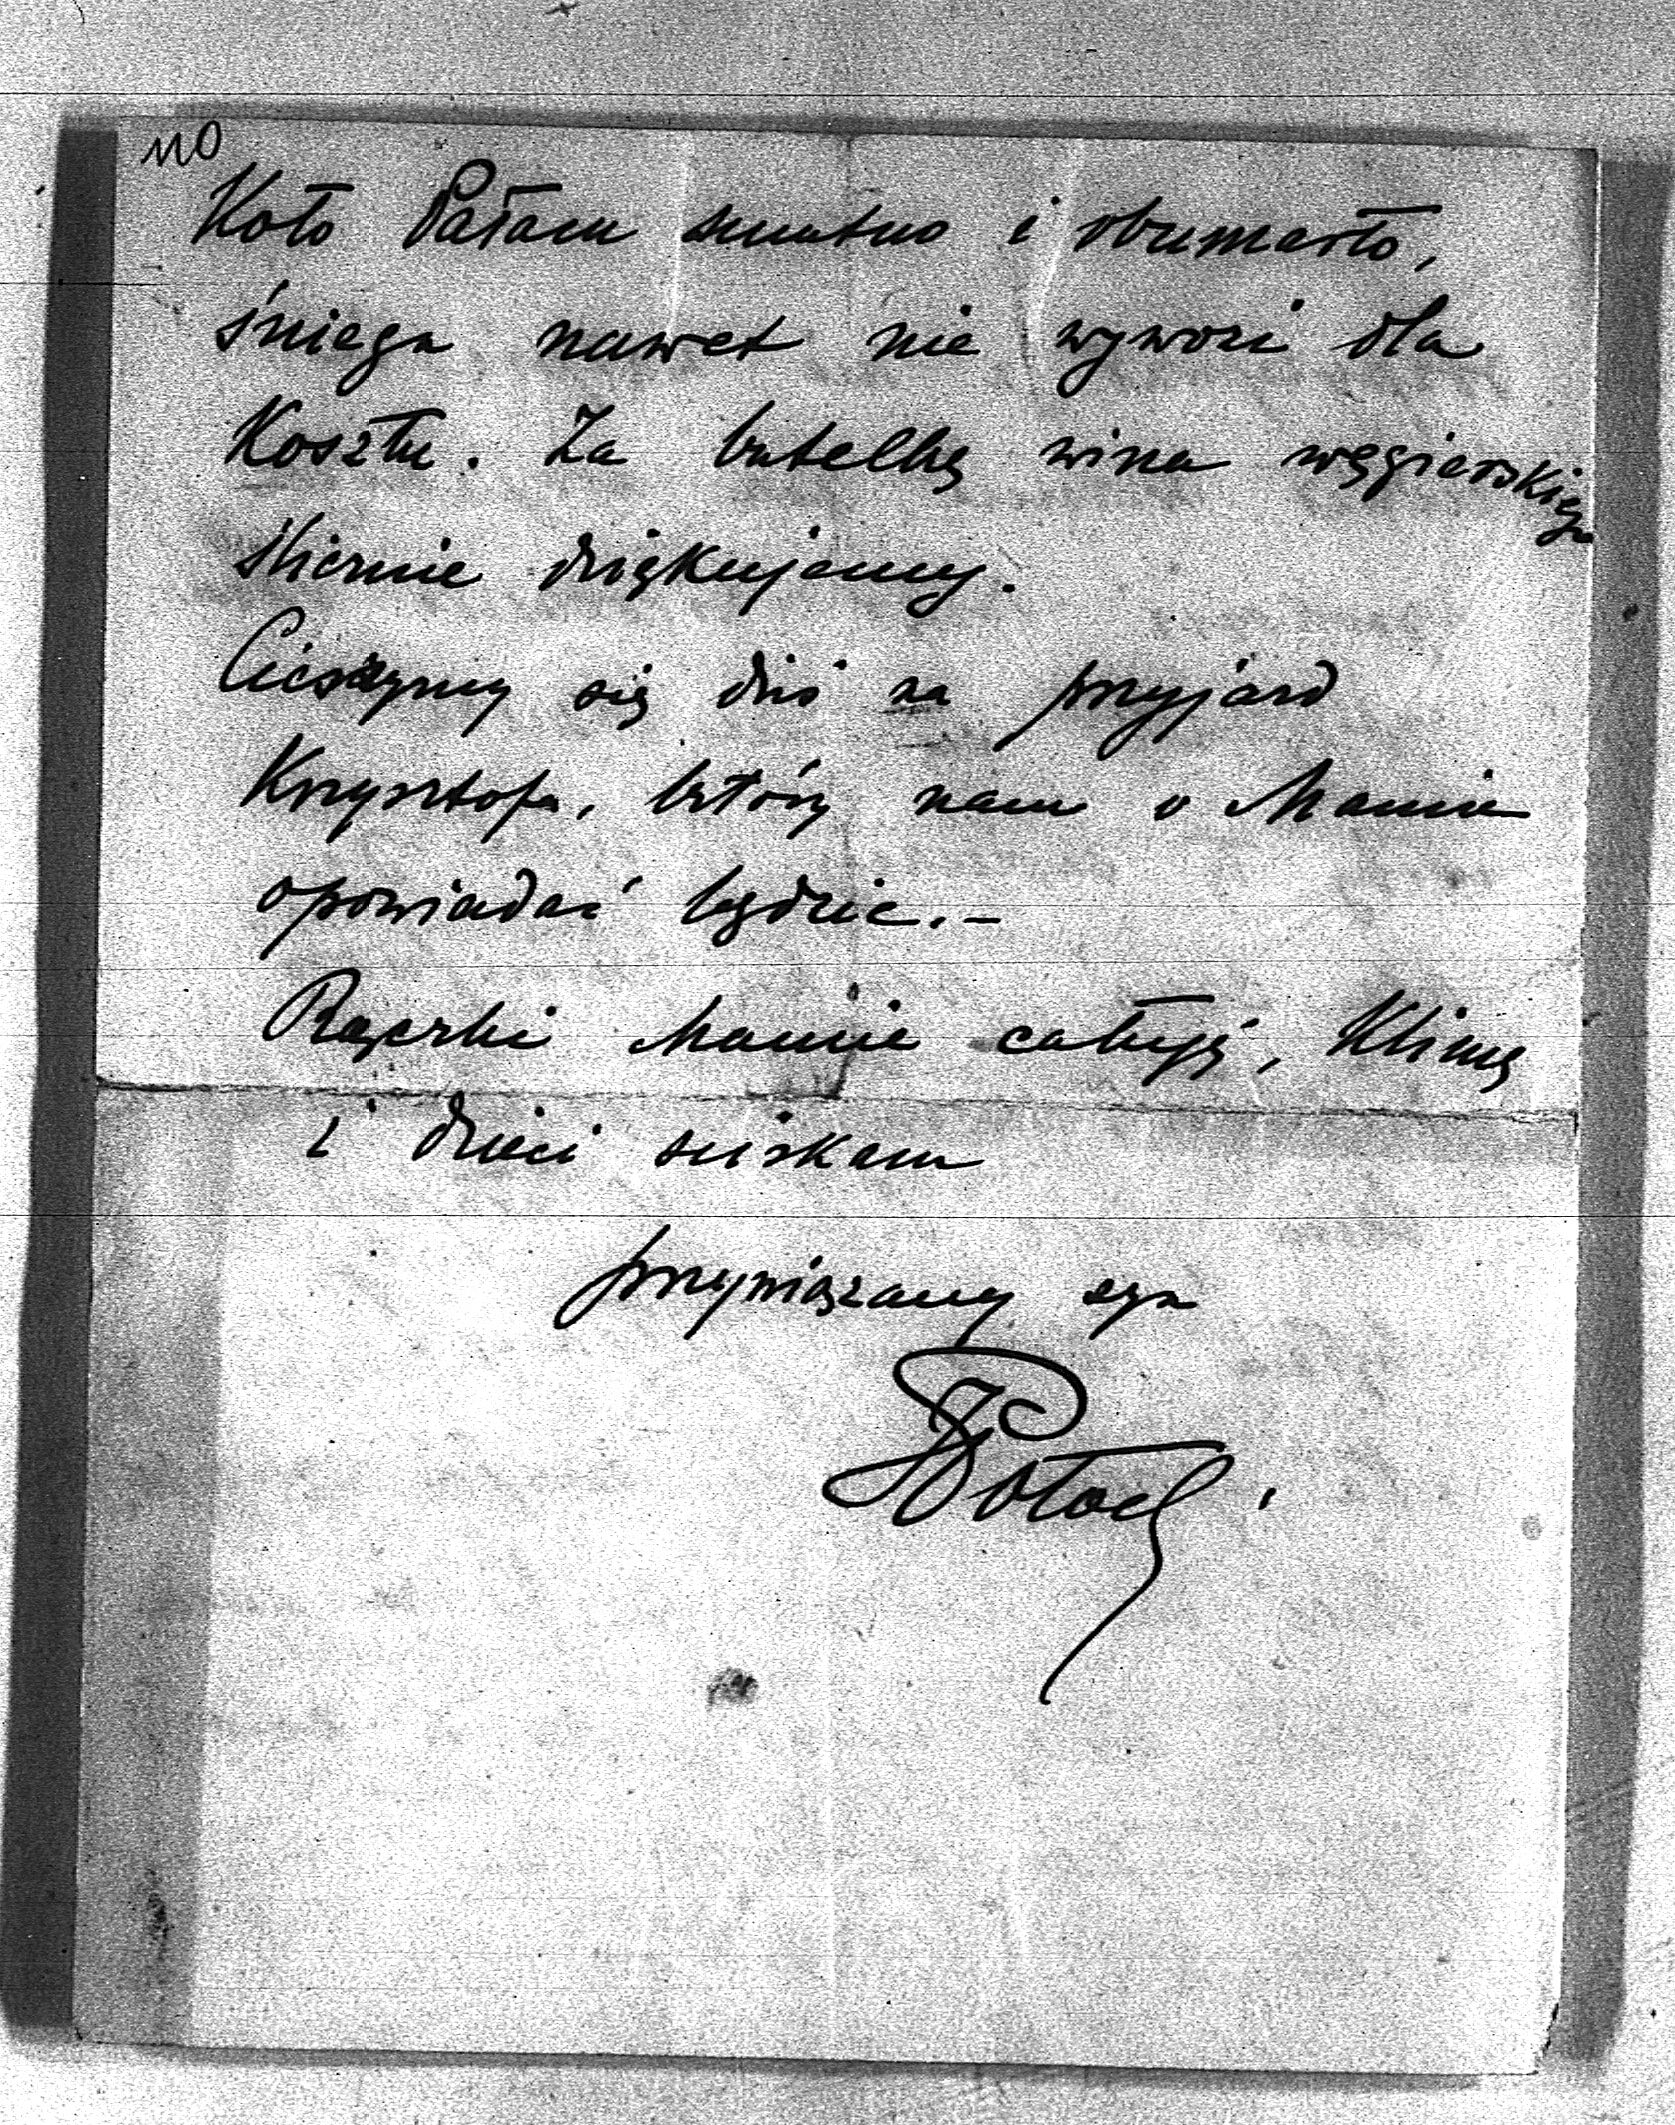 110
Koło Pałacu smutno i obumarło,
śniegu nawet nie wywozi dla
Kosztu. Za butelkę wina węgierskiego
ślicznie dziękujemy.
Cieszymy się dziś na przyjazd
Krzysztofa, który nam o Mamie
opowiadać będzie.-
Rączki Mamie całuję, Klimę
i dzieci ściskam
przywiązany syn
JPotocki